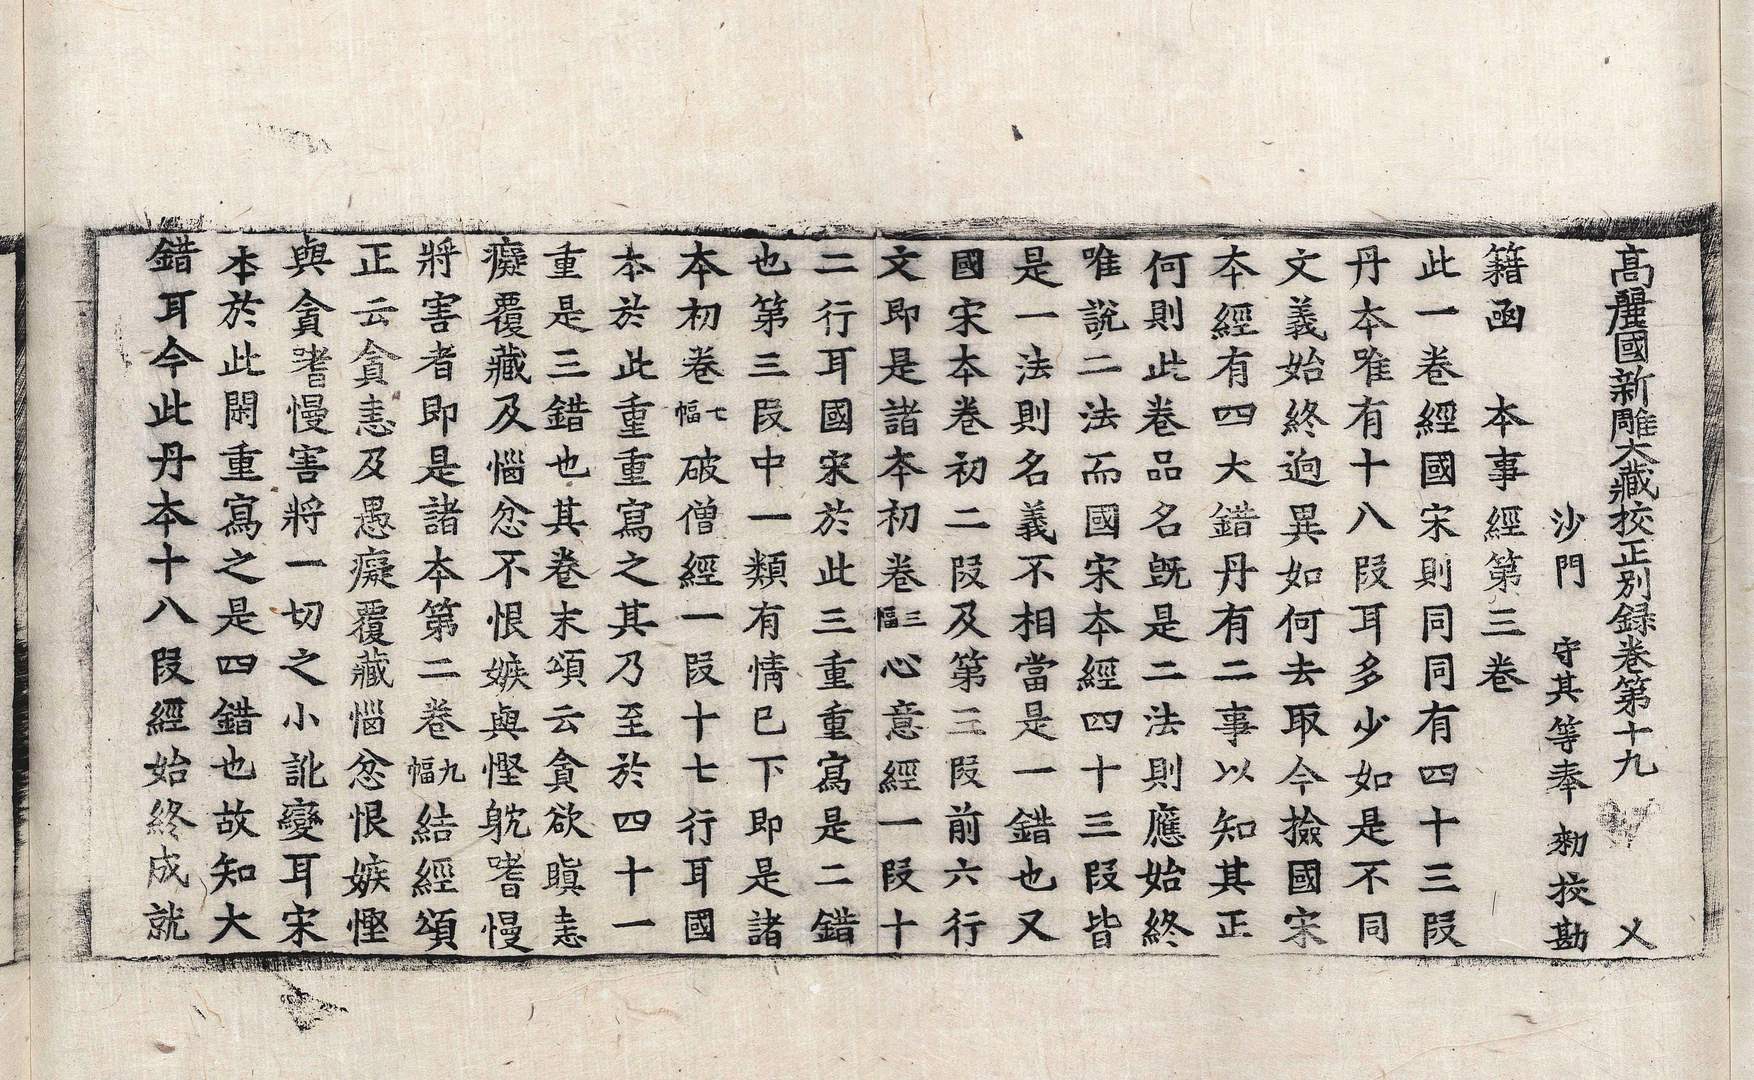 高麗國新雕大藏校正別錄卷第十九 乂
沙門 守其等奉 勑校勘
籍函 本事經第三卷
此一卷經國宋則同同有四十三段
丹本唯有十八段耳多少如是不同
文義始終逈異如何去取今撿國宋
本經有四大錯丹有二事以知其正
何則此卷品名旣是二法則應始終
唯說二法而國宋本經四十三段皆
是一法則名義不相當是一錯也又
國宋本卷初二段及第三段前六行
文即是諸本初卷三幅心意經一段十
二行耳國宋於此三重重寫是二錯
也第三段中一類有情已下即是諸
本初卷七幅破僧經一段十七行耳國
本於此重重寫之其乃至於四十一
重是三錯也其卷末頌云貪欲瞋恚
癡覆藏及惱忿不恨嫉與慳躭嗜慢
將害者即是諸本第二卷九幅結經頌
正云貪恚及愚癡覆藏惱忿恨嫉慳
與貪嗜慢害將一切之小訛變耳宋
本於此閑重寫之是四錯也故知大
錯耳今此丹本十八段經始終成就